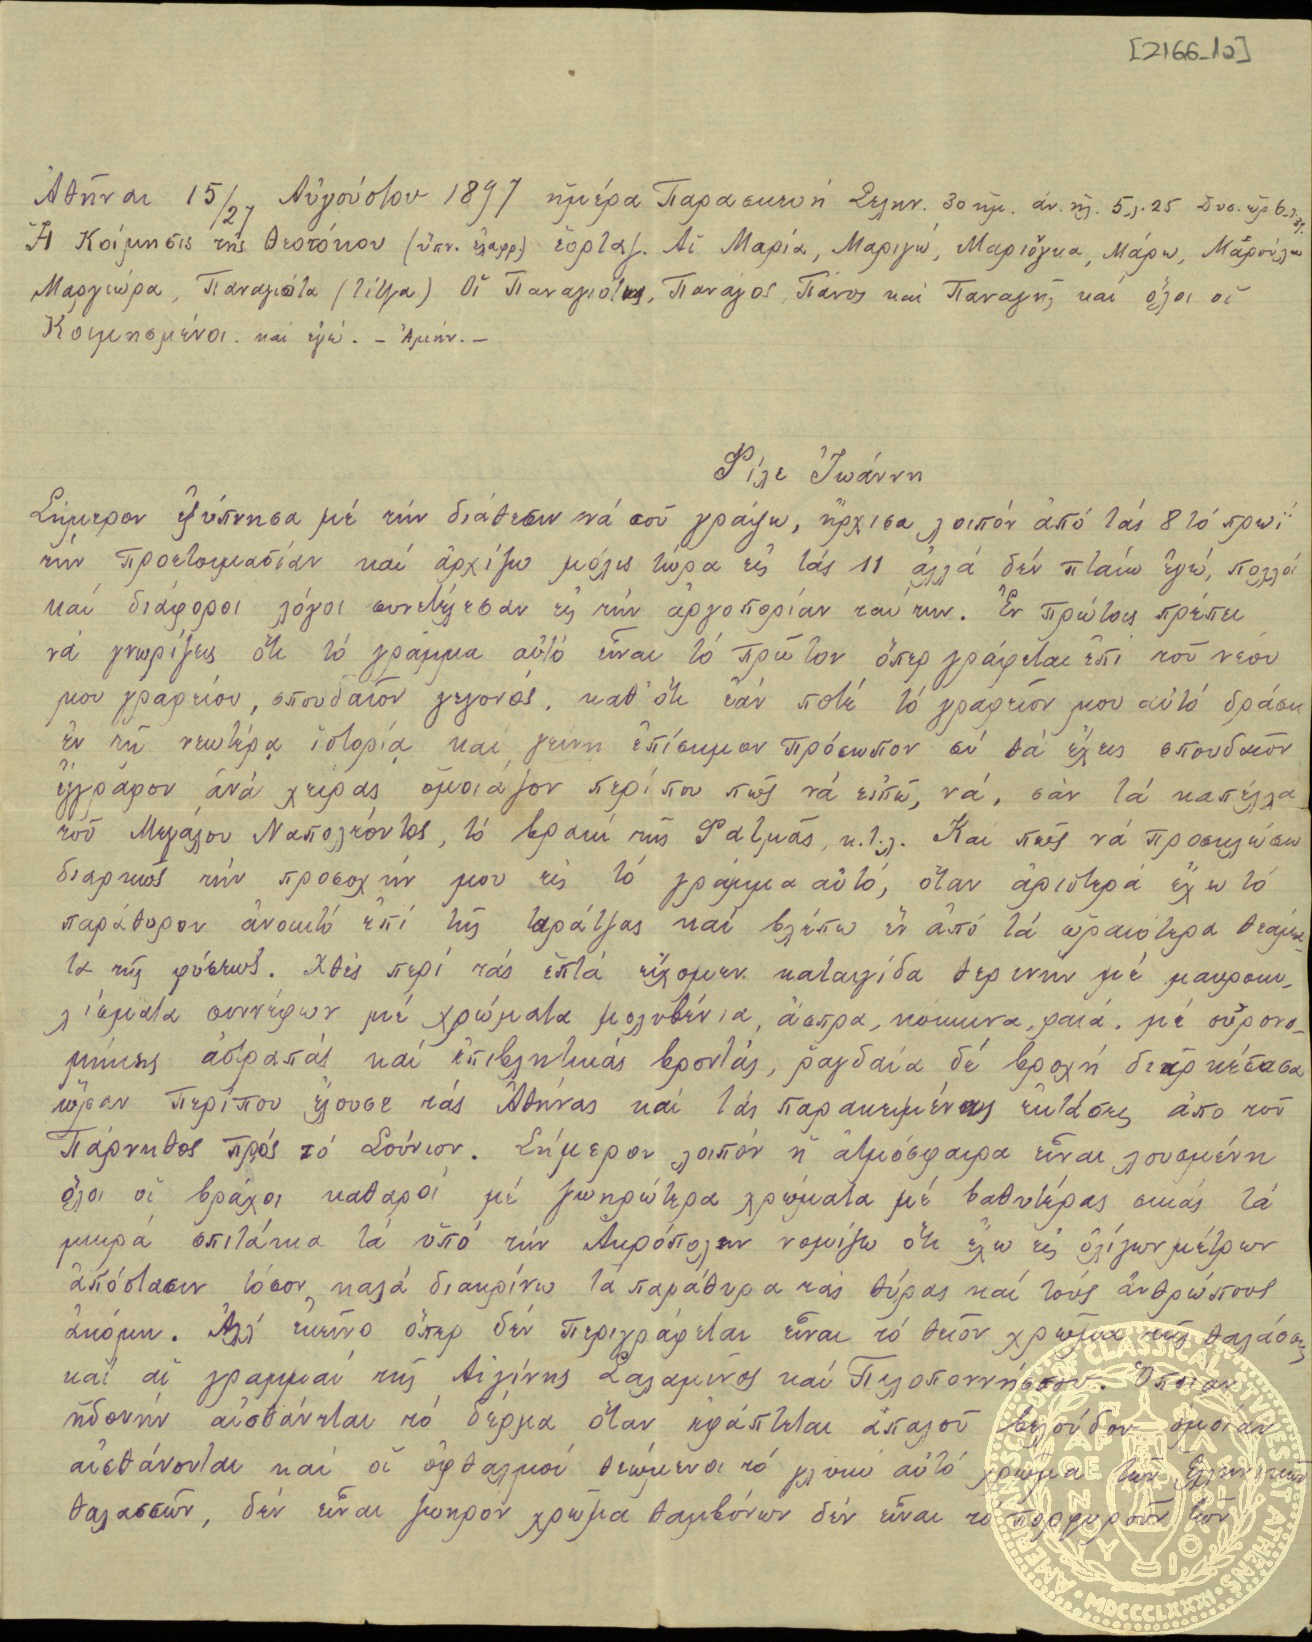 [2166_1a]
Ἀθῆναι 15/27 Αὐγούστου 1897 ἡμέρα Παρασκευή Σελην. 30 ἡμ. ἀν. ἡλ. 5.λ.25 δυσ.
Ἡ Κοίμησις τῆς Θεοτόκου (ὑπν. ἐλαφρ) ἑορταζ. Αἱ Μαρία, Μαριγώ, Μαριόγκα, Μάρω, Μαρούλα
Μαργιώρα, Παναγιώτα (Τίτζα) Οἱ Παναγιώται, Πανάγος, Πάνος καί Παναγῆς καί ὅλοι οἱ
Κοιμησμένοι. καί ἐγώ. – Ἀμήν. –
Φίλε Ἰωάννη
Σήμερον ἐξύπνησα μέ τήν διάθεσιν νά σοῦ γράψω, ἤρχισα λοιπόν ἀπό τάς 8 τό πρωΐ
τήν προετοιμασίαν καί ἀρχίζω μόλις τώρα εἰς τάς 11 ἀλλά δέν πταίω ἐγώ, πολλοί
καί διάφοροι λόγοι συνετέλεσαν εἰς τήν ἀργοπορίαν ταύτην. Ἐν πρώτοις πρέπει
νά γνωρίζεις ὅτι τό γράμμα αὐτό εἶναι τό πρῶτον ὅπερ γράφεται ἐπί τοῦ νέου
μου γραφείου, σπουδαῖον γεγονός, καθ' ὅτι ἐάν ποτέ τό γραφεῖον μου αὐτό δράσῃ
ἐν τῇ νεωτέρᾳ ἱστορίᾳ καί γείνῃ ἐπίσημον πρόσωπον σύ θά ἔχεις σπουδαῖον
ἔγγραφον ἀνά χεῖρας ὁμοιάζον περίπου πῶς νά εἰπῶ, νά, σάν τά καπέλλα
τοῦ Μεγάλου Ναπολέοντος, τό βρακί τῆς Φατμᾶς, κ.τ.λ. Καί πῶς νά προσηλώσω
διαρκῶς τήν προσοχήν μου εἰς τό γράμμα αὐτό, ὅταν ἀριστερά ἔχω τό
παράθυρον ἀνοικτό ἐπί τῆς ταράτζας καί βλέπω ἕν ἀπό τά ὡραιότερα θεάμα-
τα τῆς φύσεως. Χθές περί τάς ἑπτά εἴχομεν καταιγίδα θερινήν μέ μαυροκυ-
λίσματα συννέφων μέ χρώματα μολυβένια, ἄσπρα, κόκκινα, φαιά. μέ οὐρανο-
μήκεις ἀστραπάς καί ἐπιβλητικάς βροντάς, ραγδαία δέ βροχή διαρκέσασα
ὥραν περίπου ἔλουσε τάς Ἀθήνας καί τάς παρακειμένας ἐκτάσεις ἀπό τοῦ
Πάρνηθος πρός τό Σούνιον. Σήμερον λοιπόν ἡ ἀτμόσφαιρα εἶναι λουσμένη
ὅλοι οἱ βράχοι καθαροί μέ ζωηρώτερα χρώματα μέ βαθυτέρας σκιάς τά
μικρά σπιτάκια τά ὑπό τήν Ἀκρόπολιν νομίζω ὅτι ἔχω εἰς ὀλίγων μέτρων
ἀπόστασιν τόσον καλά διακρίνω τά παράθυρα τάς θύρας καί τούς ἀνθρώπους
ἀκόμη. Ἀλλ' ἐκεῖνο ὅπερ δέν περιγράφεται εἶναι τό θεῖον χρῶμα τῆς θαλάσσης
καί αἱ γραμμαί τῆς Αἰγίνης Σαλαμῖνος καί Πελοποννήσου. Ὁποίαν
ἡδονήν αἰσθάνεται τό δέρμα ὅταν ἐφάπτεται ἁπαλοῦ βελούδου ὁμοίαν
αἰσθάνονται καί οἱ ὀφθαλμοί θεώμενοι τό γλυκύ αὐτό χρῶμα τῶν Ἑλληνικῶν
θαλασσῶν, δέν εἶναι ζωηρόν χρῶμα θαμβόνων δέν εἶναι τό πορφυροῦν τῶν
AMERICAN SCHOOL OF CLASSICAL STUDIES AT ATHENS · MDCCCLXXXI ·